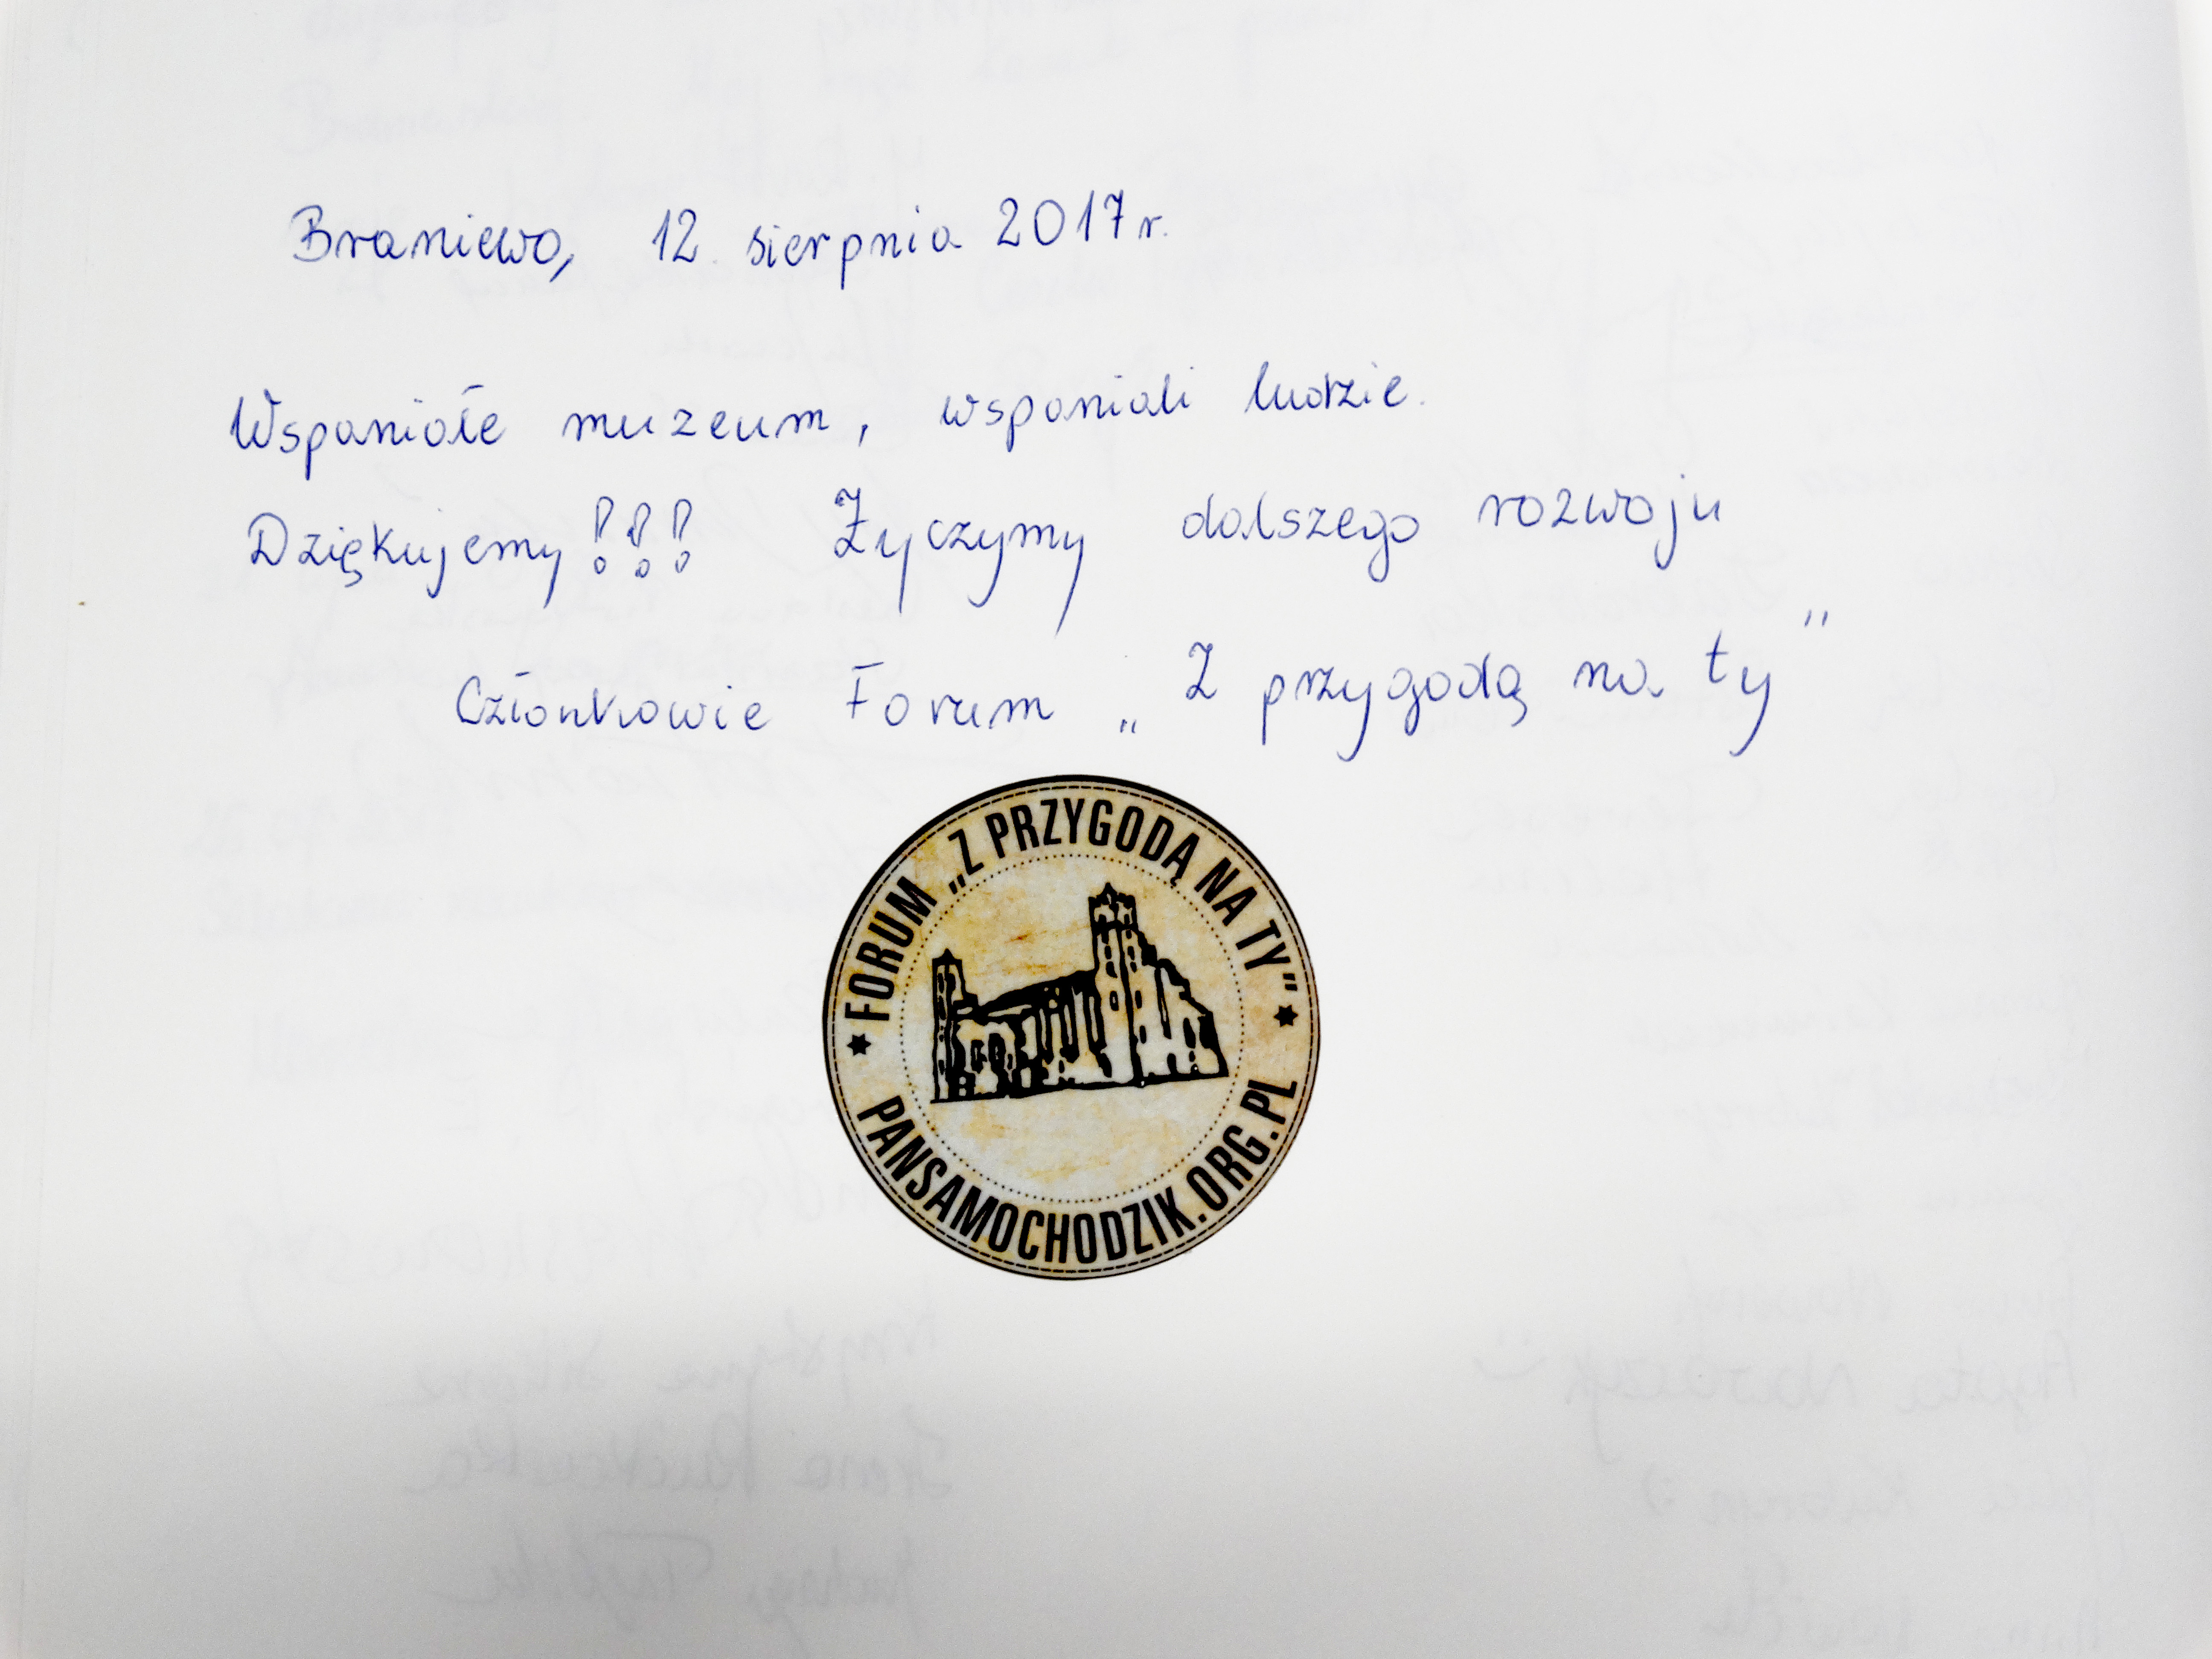 Braniewo, 12 sierpnia 2017 r.
Wspaniałe muzeum, wspaniali ludzie.
Dziękujemy!!! Życzymy dalszego rozwoju
Członkowie Forum „Z przygodą na ty”
FORUM „Z PRZYGODĄ NA TY”
PANSAMOCHODZIK.ORG.PL